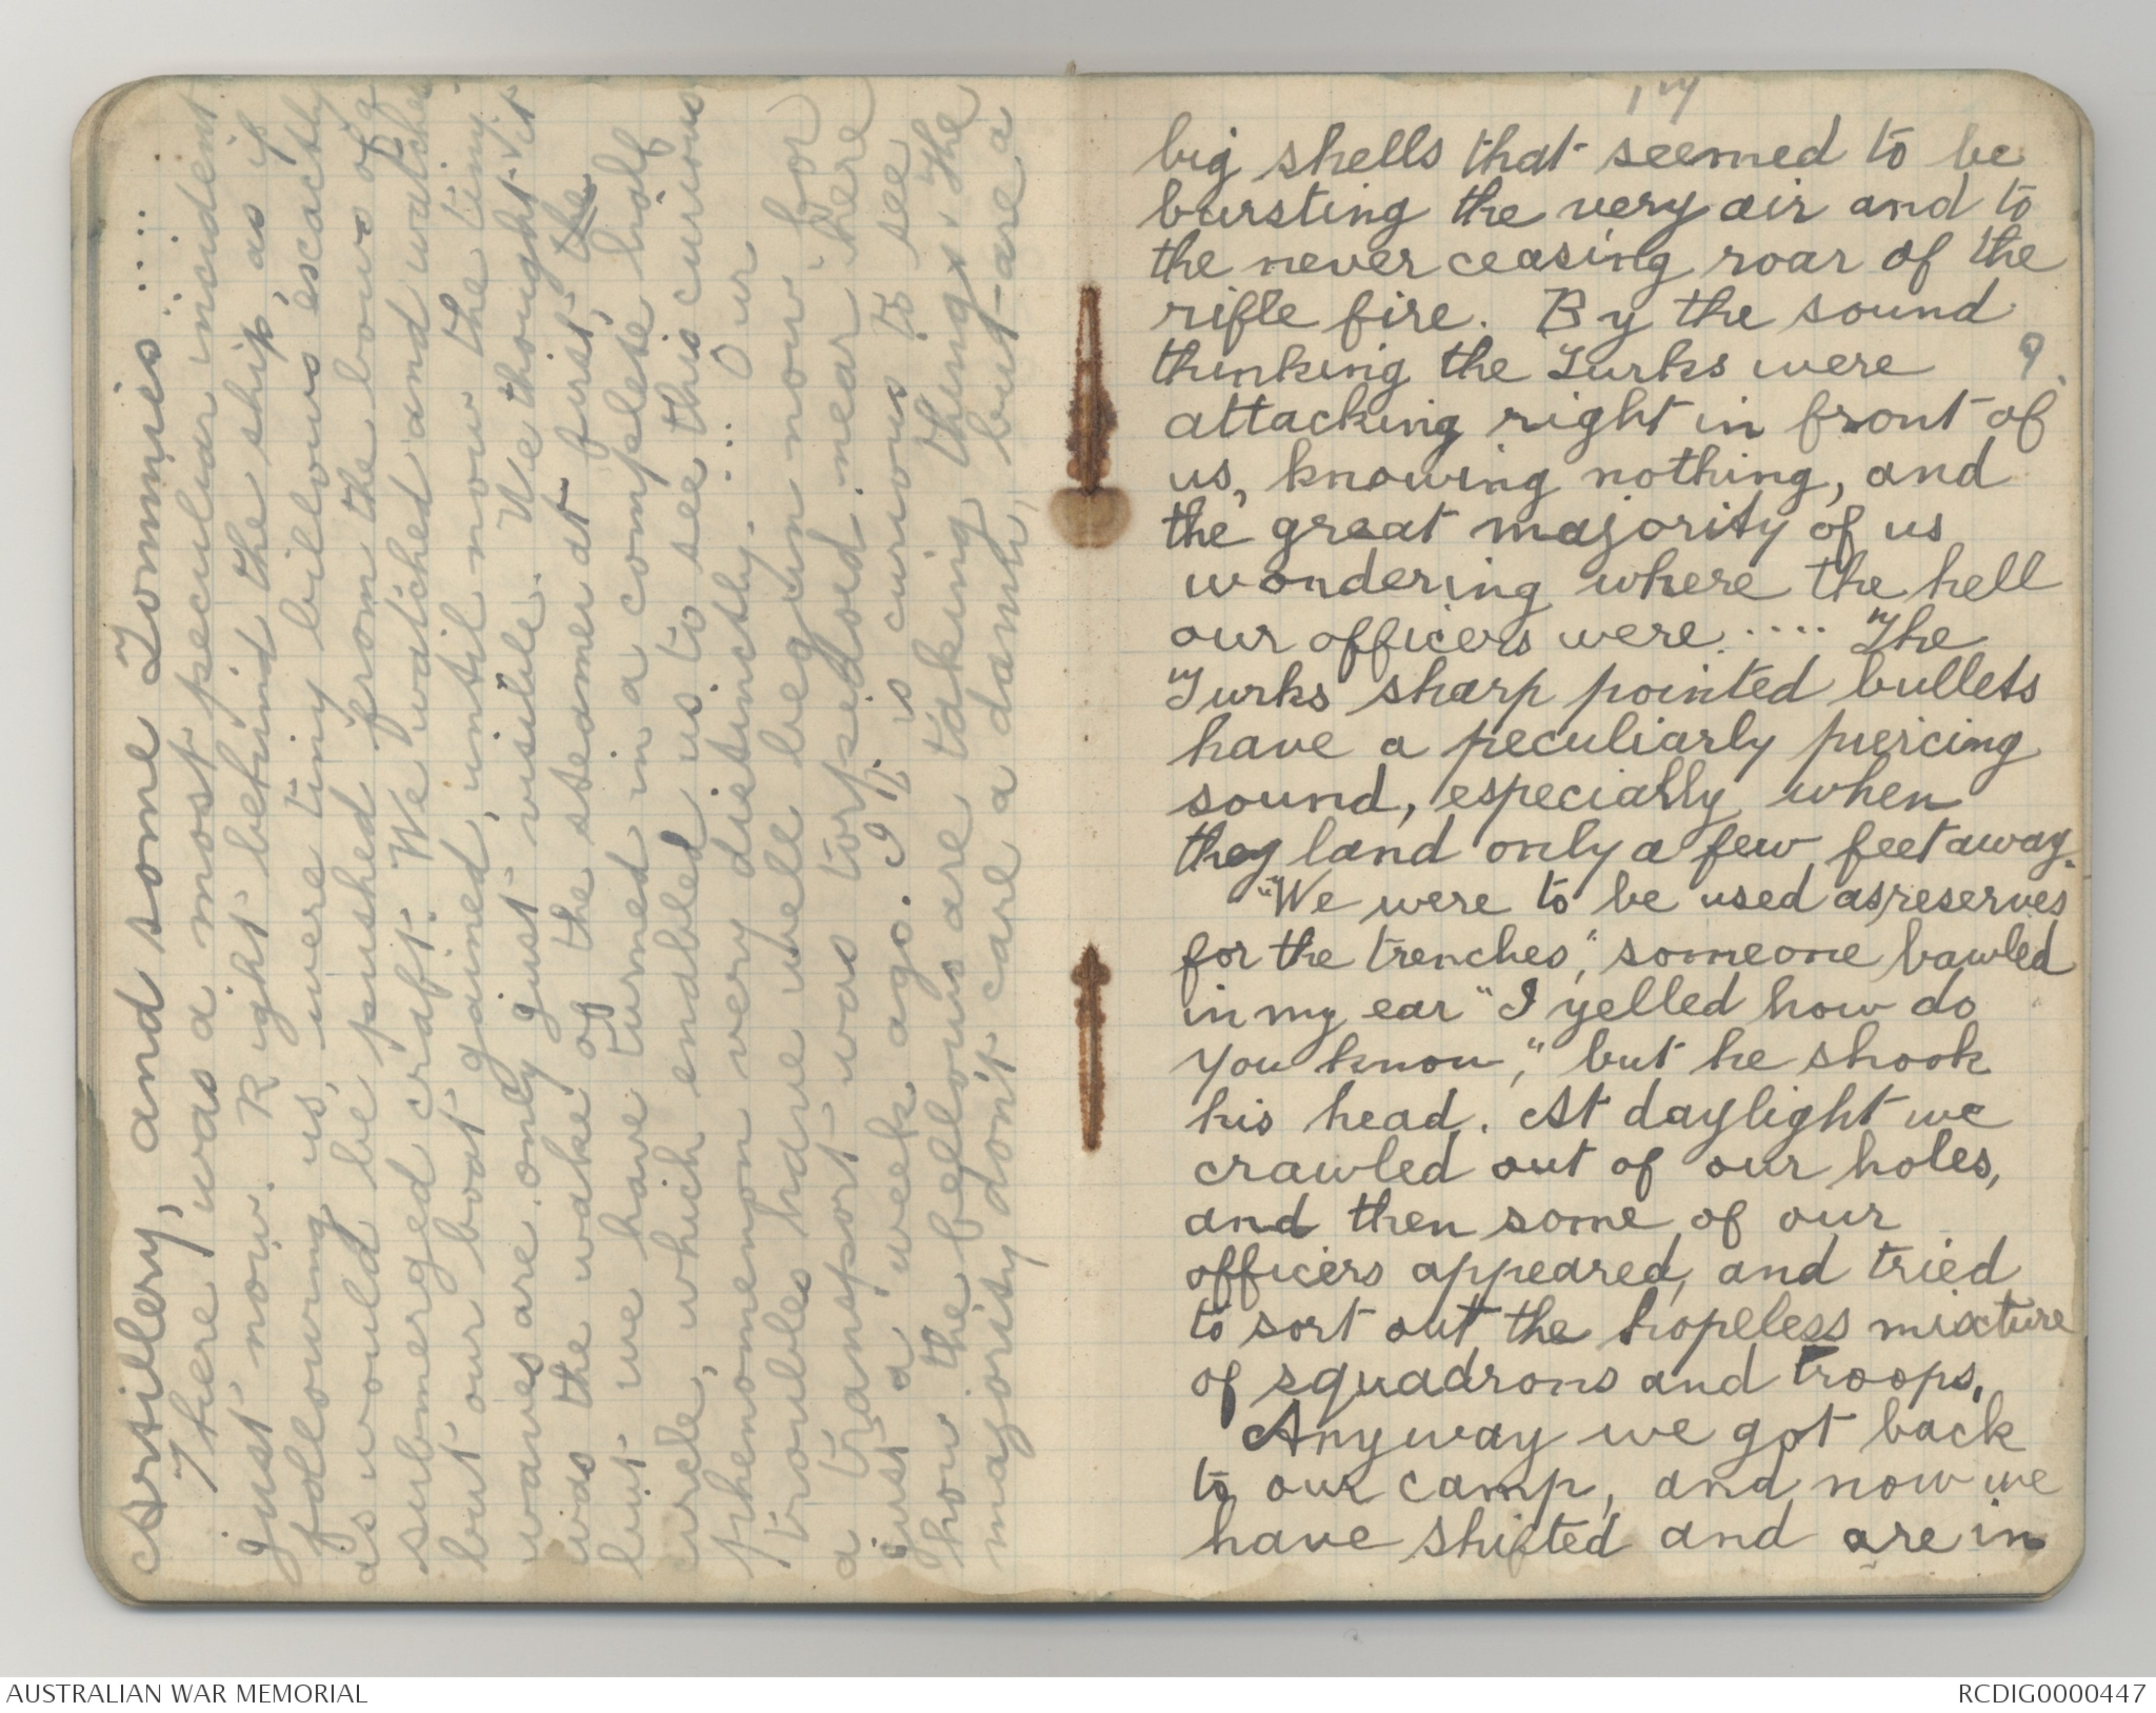 Artillery, and some Tommies ....:
There was a most peculiar incident
just now. Right behind the ship, as if
following us, were tiny billows exactly
as would be pushed from the bows of a
submerged craft. We watched and watched
but our boat gained, until now the tiny
waves are only just visible. We thought it
was the wake of the steamer at first, the
but we have turned in a complete half
circle, which enabled us to see this curious
phenomenon very distinctly. .... Our
troubles have well begun now, for
a transport was torpedoed near here
just a week ago. It is curious to see
how the fellows are taking things. The
majority don't care a damn, but are a
17
big shells that seemed to be
bursting the very air and to
the never ceasing roar of the
rifle fire. By the sound
thinking the Turks were ?
attacking right in front of
us, knowing nothing, and
the great majority of us
wondering where the hell
our officers were..... The
Turks sharp pointed bullets
have a peculiarly piercing
sound, especially when
they land only a few feet away.
"We were to be used as reserves
for the trenches," someone bawled
in my ear "I yelled how do
you know," but he shook
his head. At daylight we
crawled out of our holes,
and then some of our
officers appeared, and tried
to sort out the hopeless mixture
of squadrons and troops.
Anyway we got back
to our camp, and now we
have shifted and are in
AUSTRALIAN WAR MEMORIAL
RCDIG0000447